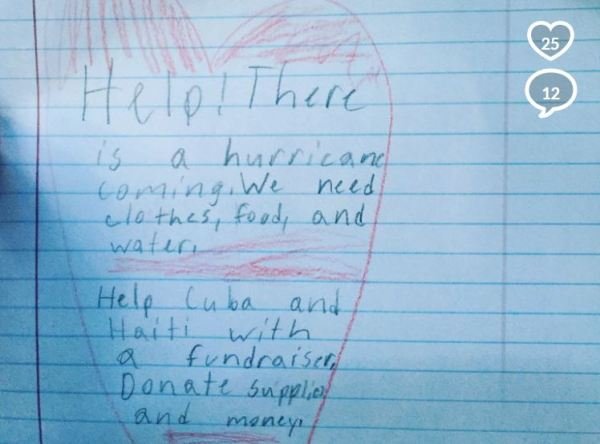 25
12
Help! There
is a hurricane
coming. We need
clothes, food, and
water.
Help Cuba and
Haiti with
a fundraiser.
Donate supplies
and money.